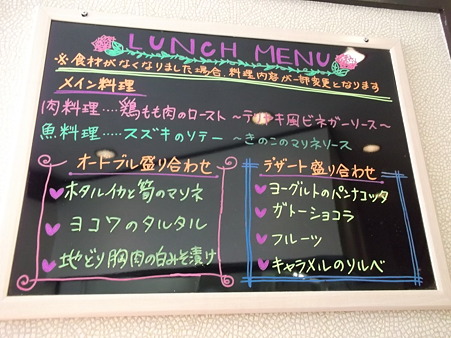 LUNCH MENU
※食材がなくなりました場合、料理内容が一部変更となります
メイン料理
肉料理….鶏もも肉のロースト ～テリヤキ風ビネガーソース～
魚料理……スズキのソテー ～きのこのマリネソース
オードブル盛り合わせ
ホタルイカと筍のマリネ
ヨコワのタルタル
地どり胸肉の白みそ漬け
デザート盛り合わせ
ヨーグルトのパンナコッタ
ガトーショコラ
フルーツ
キャラメルのソルベ